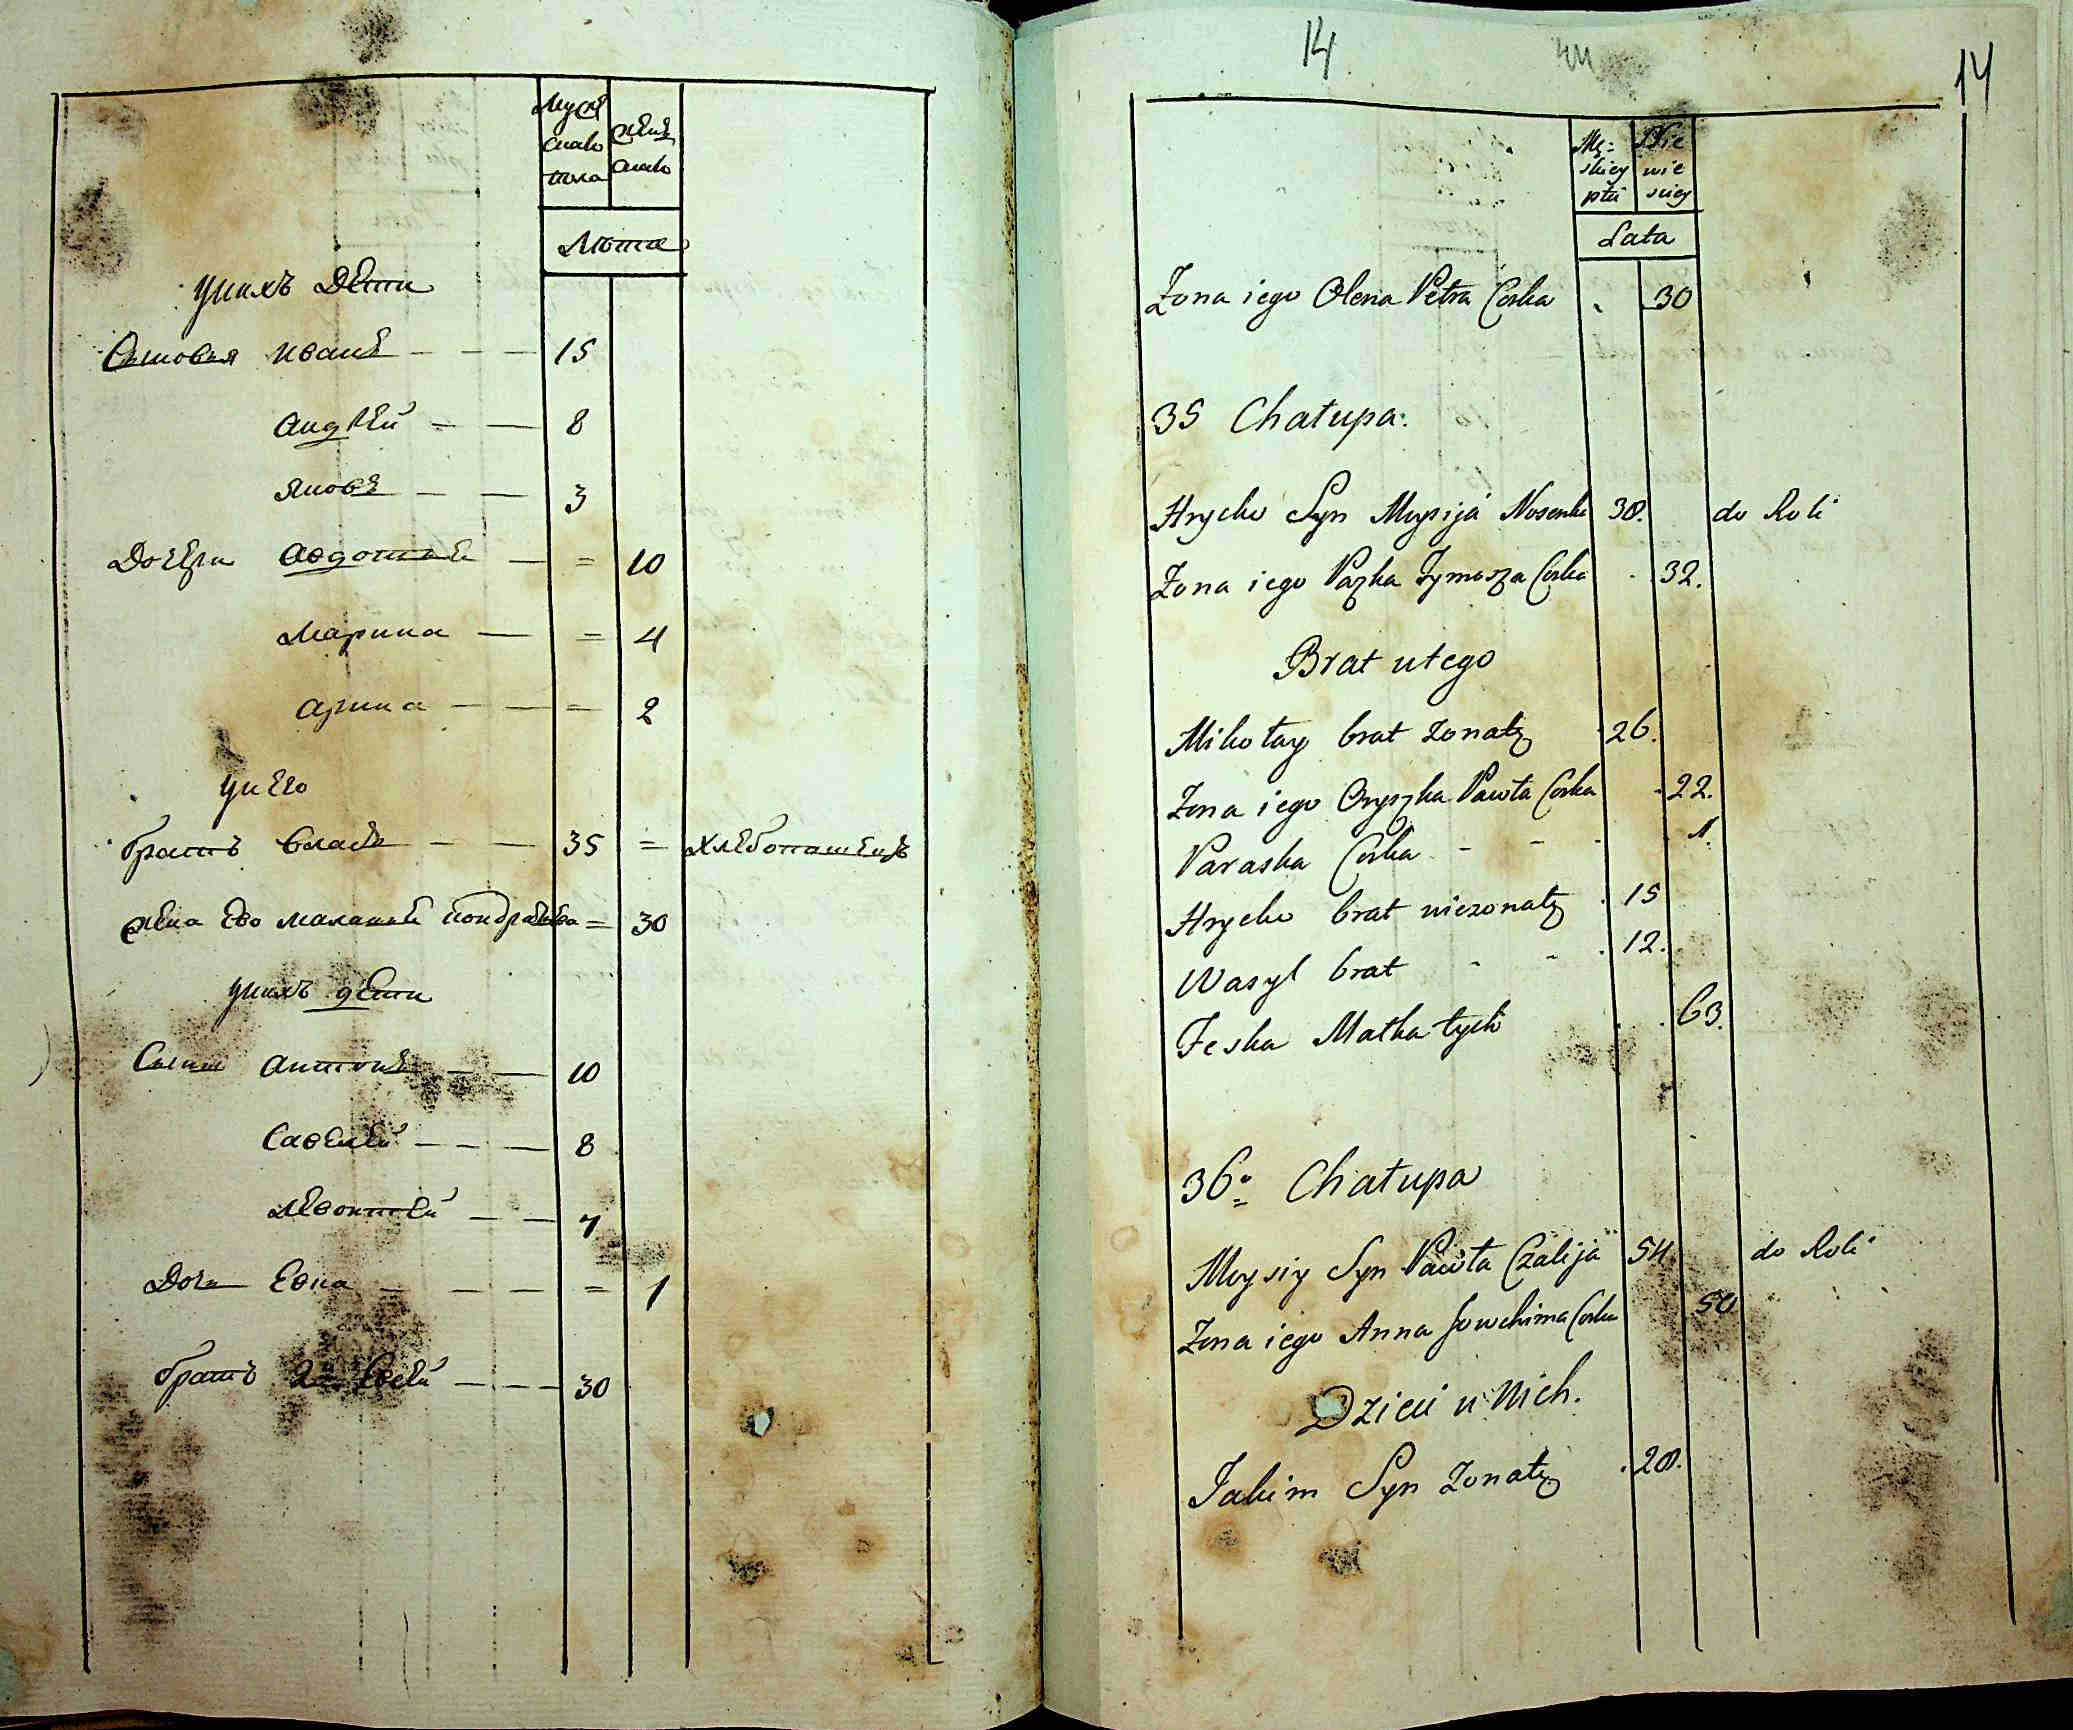 Муск
скаво
пола
женс
скаво
Лѣта
у них дѣти
Сыновья Иванъ — — — 15
Андрей — — 8
Яковъ — — 3
Дочери Авдотья — = 10
Марина — = 4
Арина — — = 2
у него
братъ Власъ — — 35 = хлебопашецъ
жена ево маланья кондратьева = 30
у нихъ дети
Сыны Антонъ — — 10
Савелей — — — 8
Левонтей — — 7
Дочь Евна — — — — = 1
братъ 2й Евсей — — — 30
14
14
Mę=
skiey
płci
Nie
wie
sciey
Lata
Zona iego Olena Petra Corka . 30
35 Chałupa:
Hryćko Syn Moysija Nosenko 38. do Roli
Zona iego Pazka Tymosza Corka . . 32.
Brat u tego
Mikołay brat zonaty . 26.
Zona iego Oryszka Pawła Corka . 22.
Paraska Corka - - - . 1.
Hryćko brat niezonaty . 15
Wasyl brat - - . 12.
Feska Matka tych . . 63.
36. Chałupa
Moysiy Syn Pawła Czalija 54. do Roli
Zona iego Anna Jowchima Corka 50
Dzieci u Nich.
Jakim Syn zonaty . 28.